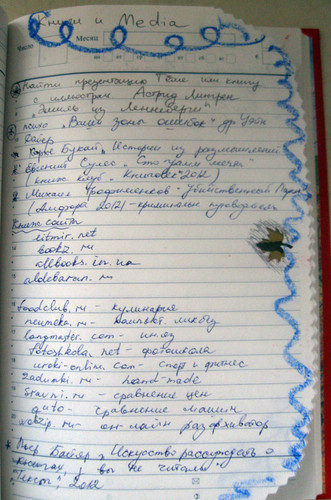 Книги и Media
Месяц
Число
Найти презентацию или книгу
с иллюстрац Астрид Линдгрен
"Эмиль из Леннеберги"
психо "Ваши зоны ошибок" др. Уэйн
Хорхе Букай "Истории из размышлений
Евгений Сулес "Сто грамм мечты"
(книж. клуб Книговек 2012)
Михаил Трофименков "Убийственный Париж"
(Амфора 2012) - криминальн путеводитель
Книж сайты
litmir.net
bookz.ru
allbooks.in.ua
aldebaran.ru
foodclub.ru - кулинария
neumeka.ru - компьют. ликбез
langmaster.com - ин.яз
fotoshkola.net - фотошкола
uroki-online.com - спор и фитнес
zadumki.ru - hand-made
sravni.ru - сравнение цен
auto - сравнение машин
wobzip.ru - он-лайн разархиватор
Пьер Байяр "Искусство рассуждать о
книгах, вы не читали"
Текст, 2012